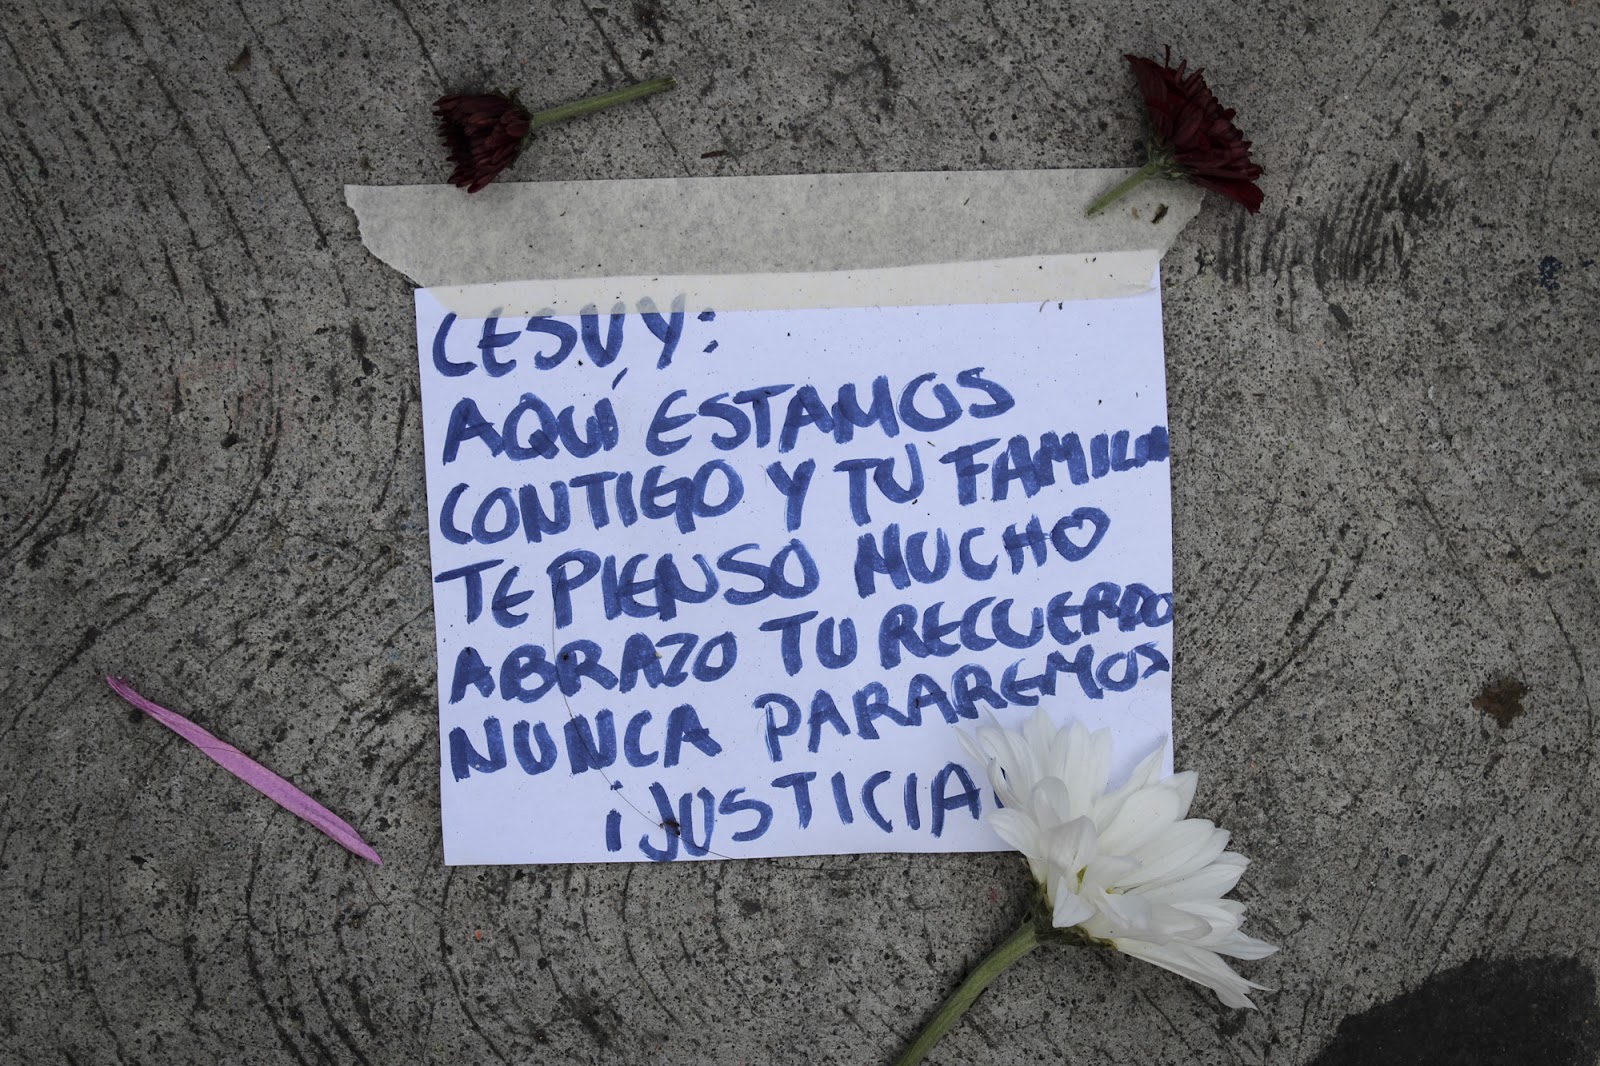 LESVY:
AQUÍ ESTAMOS
CONTIGO Y TU FAMILIA
TE PIENSO MUCHO
ABRAZO TU RECUERDO
NUNCA PARAREMOS
¡JUSTICIA